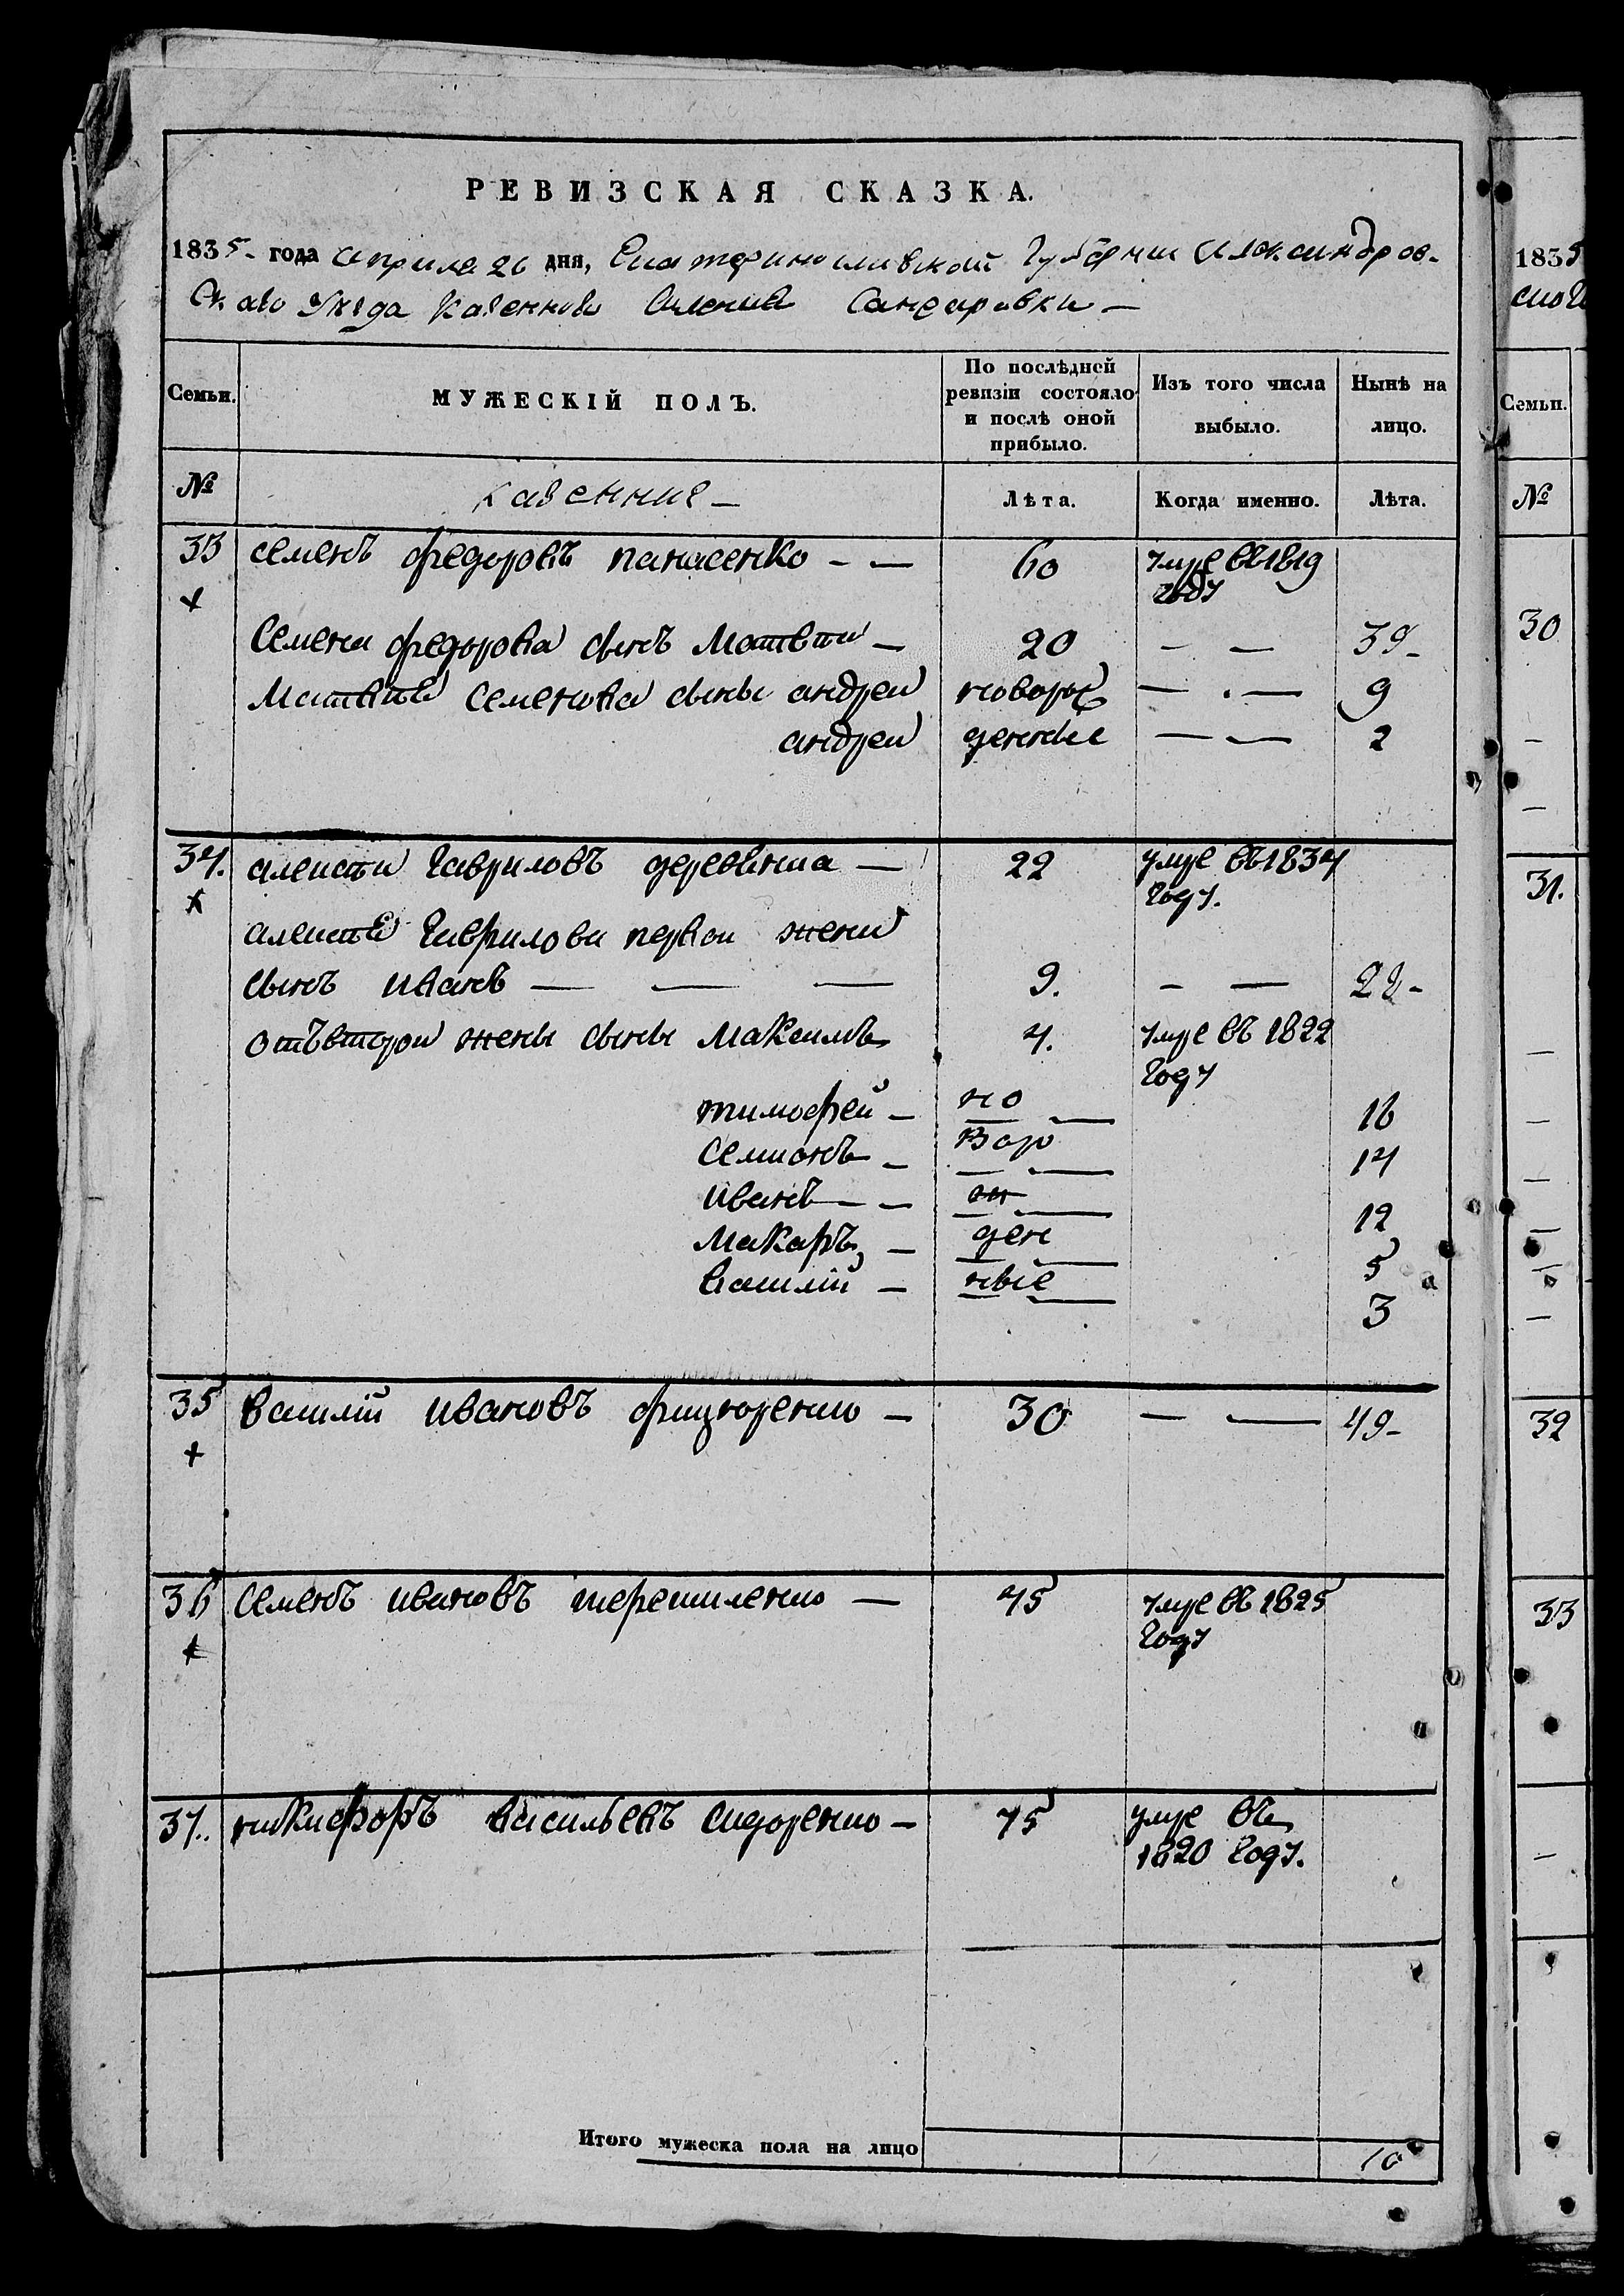 РЕВИЗСКАЯ СКАЗКА.
1835 года априля 26 дня, Екатеринославской Губернии Александров-
скаго уезда казеннова Селения
Семьи.
МУЖЕСКІЙ ПОЛЪ.
По послѣдней ревизіи состояло и послѣ оной прибыло.
Изъ того числа выбыло.
Нынѣ на лицо.
№ казенние Лѣта. Когда именно. Лѣта.
33 семенъ федоровъ панасенко 60 умре въ 1819
году
Семена федорова сынъ Матвѣи 20 — — 39
Матвѣя Семенова сыны андреи новорож — — 9
андреи денные — — 2
34. алексѣи гавриловъ деревянка 22 умре въ 1834
году.
алексѣя гаврилова первой жени
сынъ иванъ 9. — — 22
отъ втрои жены сыны максимъ 4. умре въ 1822
году
тимофей но 16
Семионъ вор 14
иванъ 12
макаръ ден 5
Василій ные 3
35 Василій ивановъ 30 — — 49
36 Семенъ ивановъ 45 умре въ 1825
году
37. никифоръ васильевъ сидоренко 75 умре въ
1820 году.
Итого мужеска пола на лицо 10
1835
Семьи.
№
30
31.
32
33